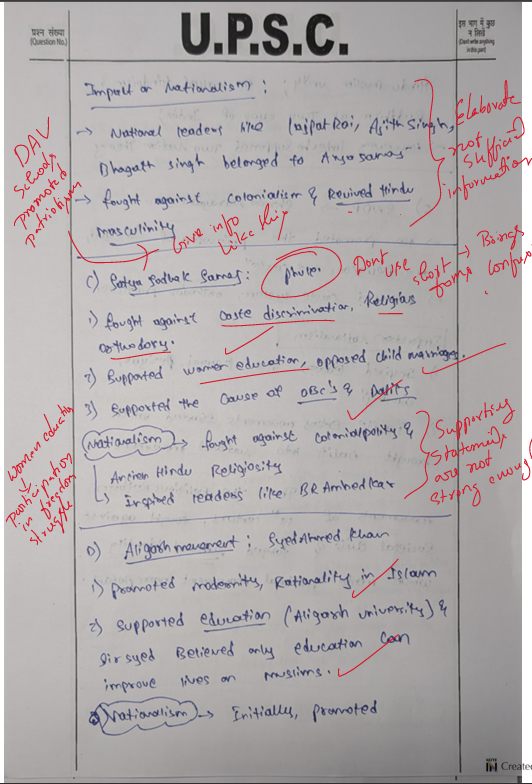 प्रश्न संख्या
(Question No.)
U.P.S.C.
इस भाग में कुछ
न लिखें
(Don't write anything
in this part)
Impact on Nationalism :
→ National leaders like lajpat Rai, Ajith Singh,
Bhagath singh belonged to Arya samas
→ fought against colonialism & Revived Hindu
masculinity
Elaborate
not sufficient
information
DAV
schools
promoted
patriotism
Give info
like this
C) Satya Sodhak Samas :
Phule
Dont use short forms → Brings confusion
1) fought against caste discrimination, Religias
orthodoxy.
2) Supported women education, opposed child marriages.
3) Supported the cause of OBC's & Dalits
Nationalism → fought against colonial polity &
Ancien Hindu Religiosity
↳ Inspired leaders like BR Ambedkar
Supporting
Statements
are not
strong enough
Women education
↓
participation
in freedom
struggle
D) Aligarh movement ; Syed Ahmed Khan
1) promoted modernity, Rationality in Islam
2) supported education (Aligarh university) &
Sir syed Believed only education can
improve lives on muslims.
Nationalism → Initially, promoted
Create